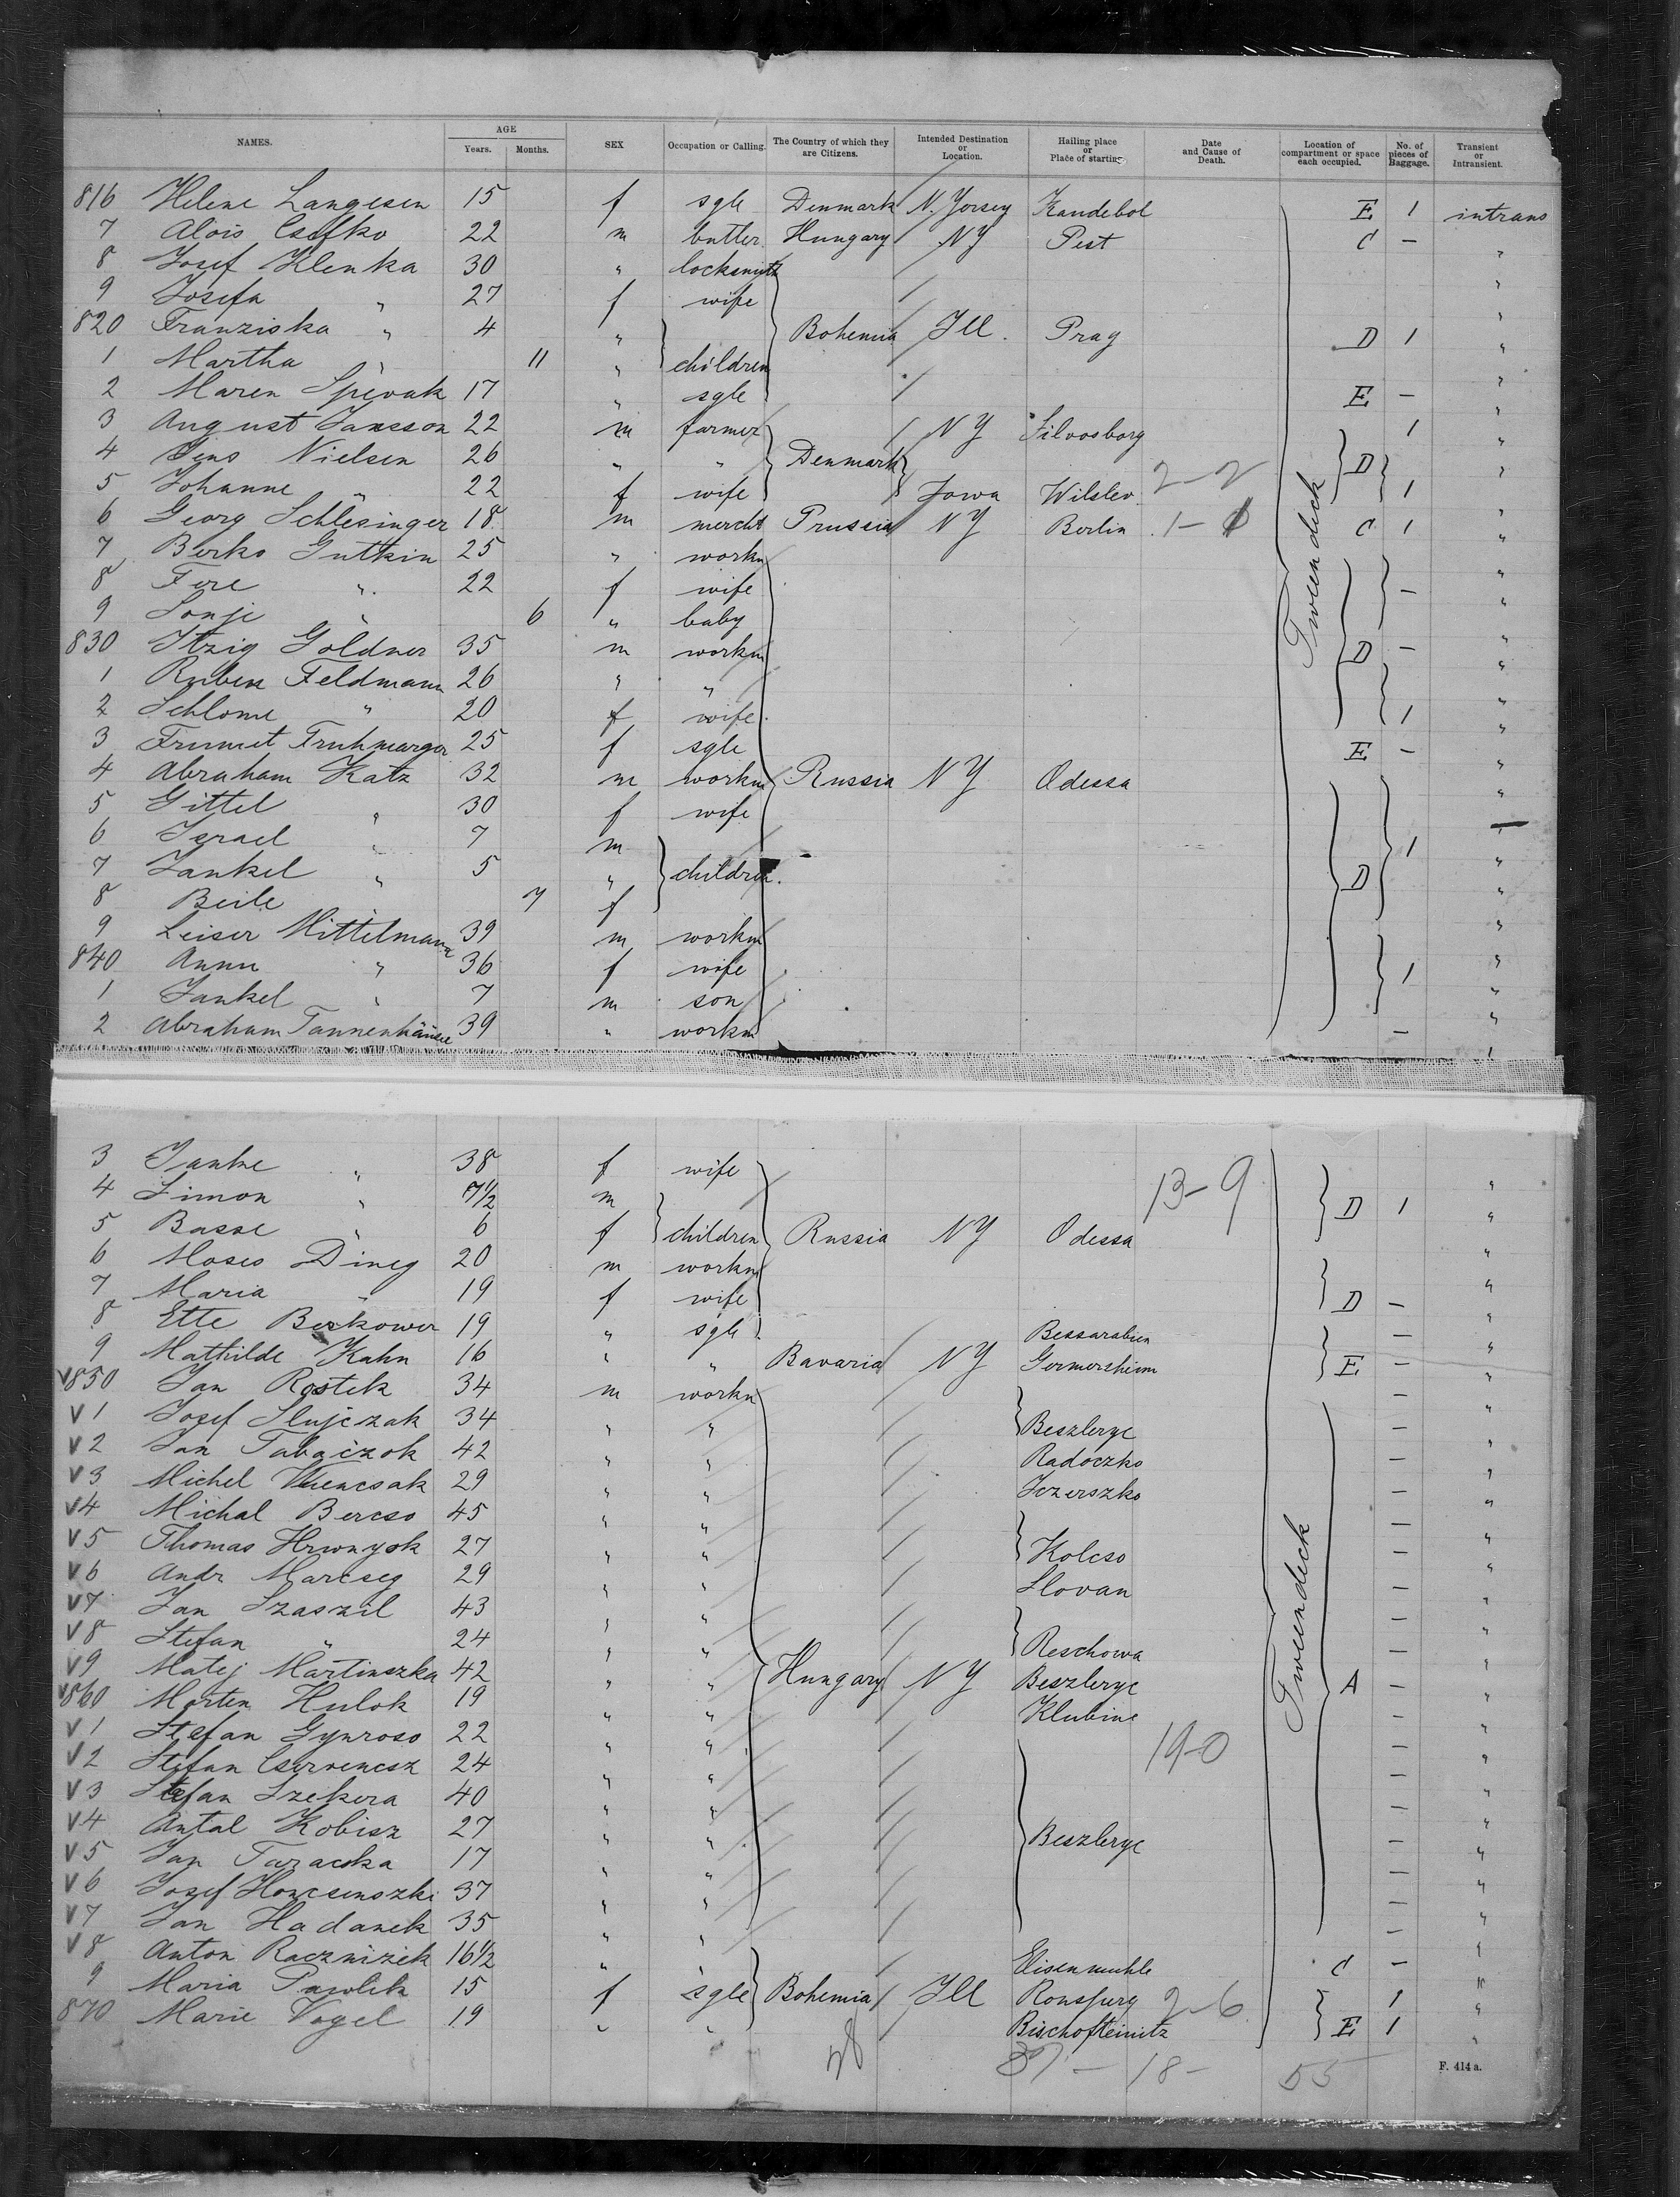 NAMES. AGE Years. Months. SEX Occupation or Calling. The Country of which they are Citizens. Intended Destination or Location. Hailing place or Place of starting. Date and Cause of Death. Location of compartment or space each occupied. No. of pieces of Baggage. Transient or Intransient.
816 Helene Langesen 15 f sgle Denmark N. Yorsey Kandebol E 1 intrans
7 Alois 22 m butler Hungary NY Pest C — "
8 Josef Klenka 30 " locksmith "
9 Josefa " 27 f wife "
820 Franziska " 4 " Bohemia Ill. Prag D 1 "
1 Martha " 11 " children "
2 Maren Spivak 17 " sgle E — "
3 August Jansson 22 m farmer NY Silvosborg 1 "
4 Jens Nielsen 26 " " Denmark D "
5 Johanne " 22 f wife Iowa Wilslev 2-2 1 "
6 Georg Schlesinger 18 m mercht Prussia NY Berlin 1- C 1 "
7 Berko Gutkin 25 " workm "
8 Fere " 22 f wife — "
9 Sonje " 6 " baby "
830 Itzig Goldner 35 m workm D — "
1 Ruben Feldmann 26 " " "
2 Schlome " 20 f wife 1 "
3 Frumet Fruhmorgen 25 f sgle E — "
4 Abraham Katz 32 m workm Russia NY Odessa "
5 Gittel " 30 f wife
6 Israel " 7 m 1 "
7 Jankel " 5 " children. D "
8 Beile " 7 f "
9 Leiser Mittelmann 39 m workm "
840 Annu " 36 f wife 1 "
1 Jankel " 7 m son "
2 Abraham Tannenhäuser 39 " workm —
Tweendeck
3 Janke " 38 f wife 13-9 "
4 Simon " 7½ m D 1 "
5 Basse " 6 f children Russia NY Odessa "
6 Moses Dineg 20 m workm "
7 Maria " 19 f wife D — "
8 Ette Berkower 19 " sgle Bessarabien — "
9 Mathilde Kahn 16 " " Bavaria NY Germersheim E — "
850 Jan Rostek 34 m workm — "
1 Josef Slujczak 34 " " Beszlerye — "
2 Jan Tabaczok 42 " " Radoczko — "
3 Michel 29 " " Jezerszko — "
4 Michal Bercso 45 " " — "
5 Thomas Hrwnyok 27 " " Kolcso — "
6 Andr Marcseg 29 " " Slovan — "
7 Jan Szaszil 43 " " — "
8 Stefan " 24 " " Reschowa — "
9 Matej Martinszka 42 " " Hungary NY Beszlerye A — "
860 Morten Hulok 19 " " Klubine — "
1 Stefan Gynroso 22 " " 19-0 — "
2 Stefan Cservencsz 24 " " — "
3 Stefan Szekera 40 " " — "
4 Antal Kobisz 27 " " Beszlerye — "
5 Jan Taracska 17 " " — "
6 Josef Honcsenszki 37 " " — "
7 Jan Hadanek 35 " " — "
8 Anton Racznizek 16½ " Elisenmuhle C — "
9 Maria Pawlik 15 f sgle Bohemia Ill Ronsperg 2-6 1 "
870 Marie Vogel 19 " " Bischofteinitz E 1 "
Tweendeck
37- 18- 55
F. 414 a.